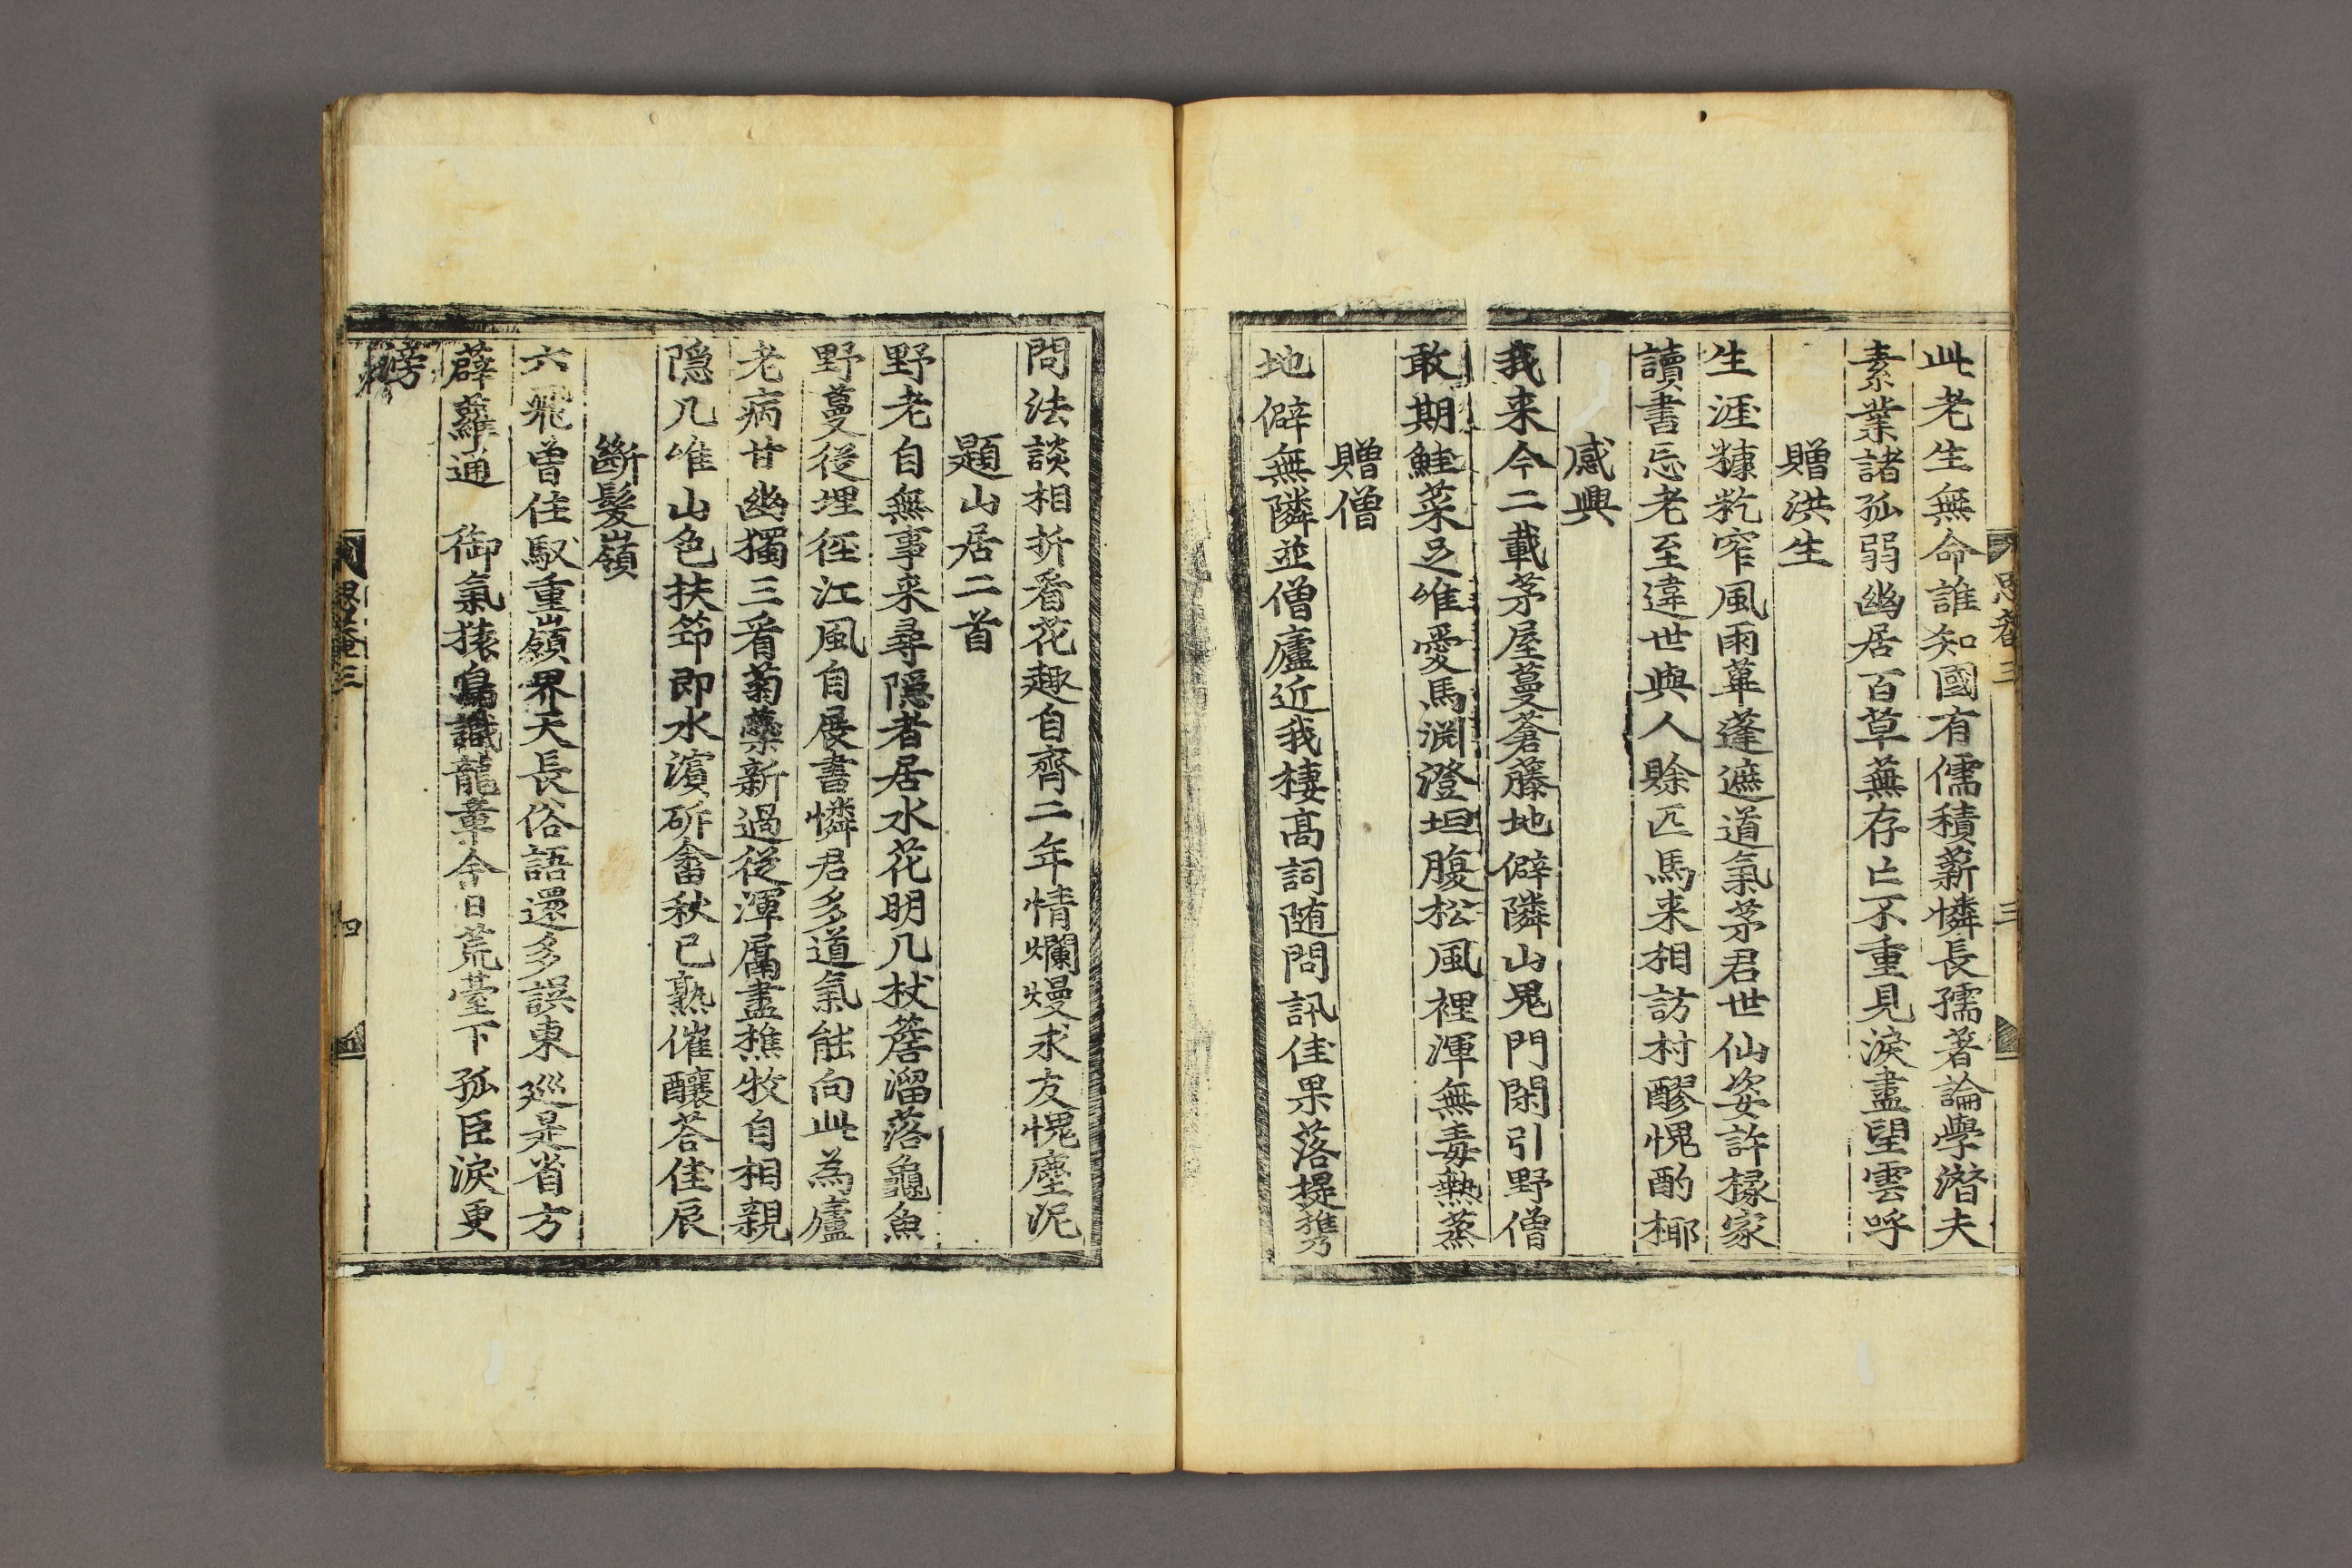 此老生無命誰知國有儒積薪憐長孺著論學潛夫
素業諸孤弱幽居百草蕪存亡不重見淚盡望雲呼
贈洪生
生涯糠籺窄風雨葦蓬遮道氣茅君世仙姿許掾家
讀書忘老至違世與人賖匹馬来相訪村醪愧酌椰
感興
我来今二載茅屋蔓蒼藤地僻隣山鬼門閑引野僧
敢期鮭菜足唯愛馬淵澄坦腹松風裡渾無毒熱蒸
贈僧
地僻無隣並僧廬近我棲高詞随問訊佳果落提携
問法談相折看花趣自齊二年情爛熳求友愧塵泥
題山居二首
野老自無事来尋隠者居水花明几杖簷溜落龜魚
野蔓從埋徑江風自展書憐君多道氣能向此為廬
老病甘幽獨三看菊蘂新過從渾屬盡樵牧自相親
隠几唯山色扶筇即水濱斫畬秋已熟催釀荅佳辰
斷髮嶺
六飛曽住馭重嶺界天長俗語還多誤東廵是省方
薜蘿通 御氣猿鳥識龍章今日荒臺下孤臣淚更
滂
思菴三
四
三